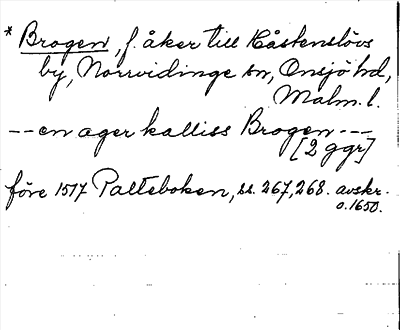 * Brogen, f. åker till Kåstenslövs
by, Norrvidinge sn, Onsjö hd,
Malm. l.
-- en ager kalliss Brogen ---
[2 ggr]
före 1517 Palteboken, ss. 267, 268. avskr.
o. 1650.